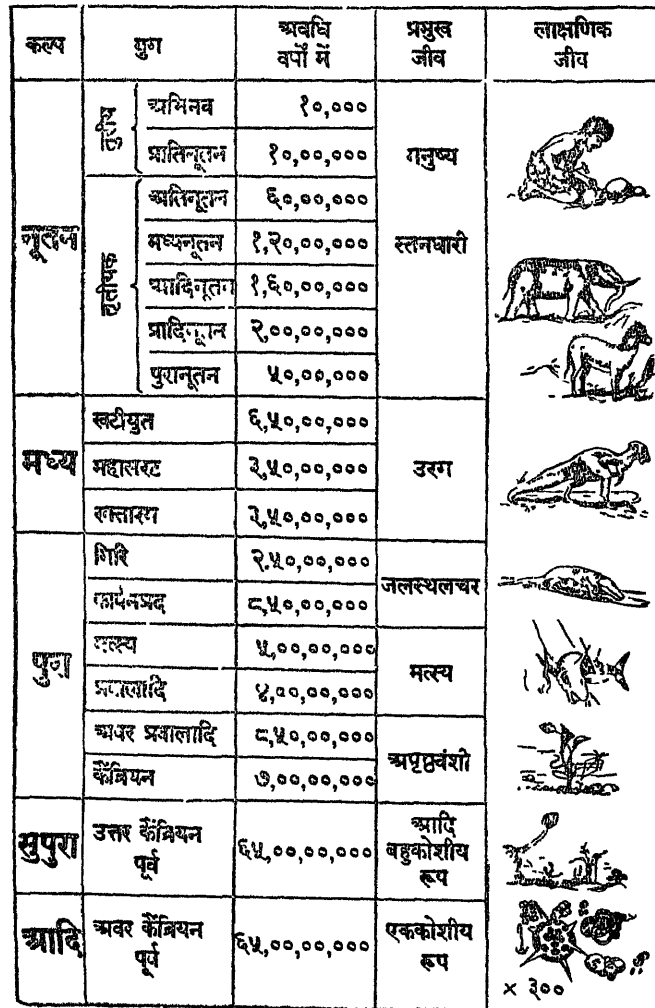 कल्प युग अवधि वर्षों में प्रमुख जीव लाक्षणिक जीव
नूतन
अभिनव १०,०००
प्रातिनूतन १०,००,०००
मनुष्य
तृतीयक
अतिनूतन ६०,००,०००
मध्यनूतन १,२०,००,०००
स्तनधारी
आदिनूतन १,६०,००,०००
प्रादिनूतन २,००,००,०००
पुरानूतन ५०,००,०००
मध्य
खटीयुत ६,५०,००,०००
महासरट ३,५०,००,०००
उरग
रक्ताश्म ३,५०,००,०००
पुरा
गिरि २,५०,००,०००
जलस्थलचर
कार्बनप्रद ८,५०,००,०००
मत्स्य ५,००,००,०००
मत्स्य
प्रवालादि ४,००,००,०००
अवर प्रवालादि ८,५०,००,०००
अपृष्ठवंशी
कैंब्रियन ७,००,००,०००
सुपुरा
उत्तर कैंब्रियन पूर्व
६५,००,००,०००
आदि बहुकोशीय रूप
आदि
अवर कैंब्रियन पूर्व
६५,००,००,०००
एककोशीय रूप
× ३००